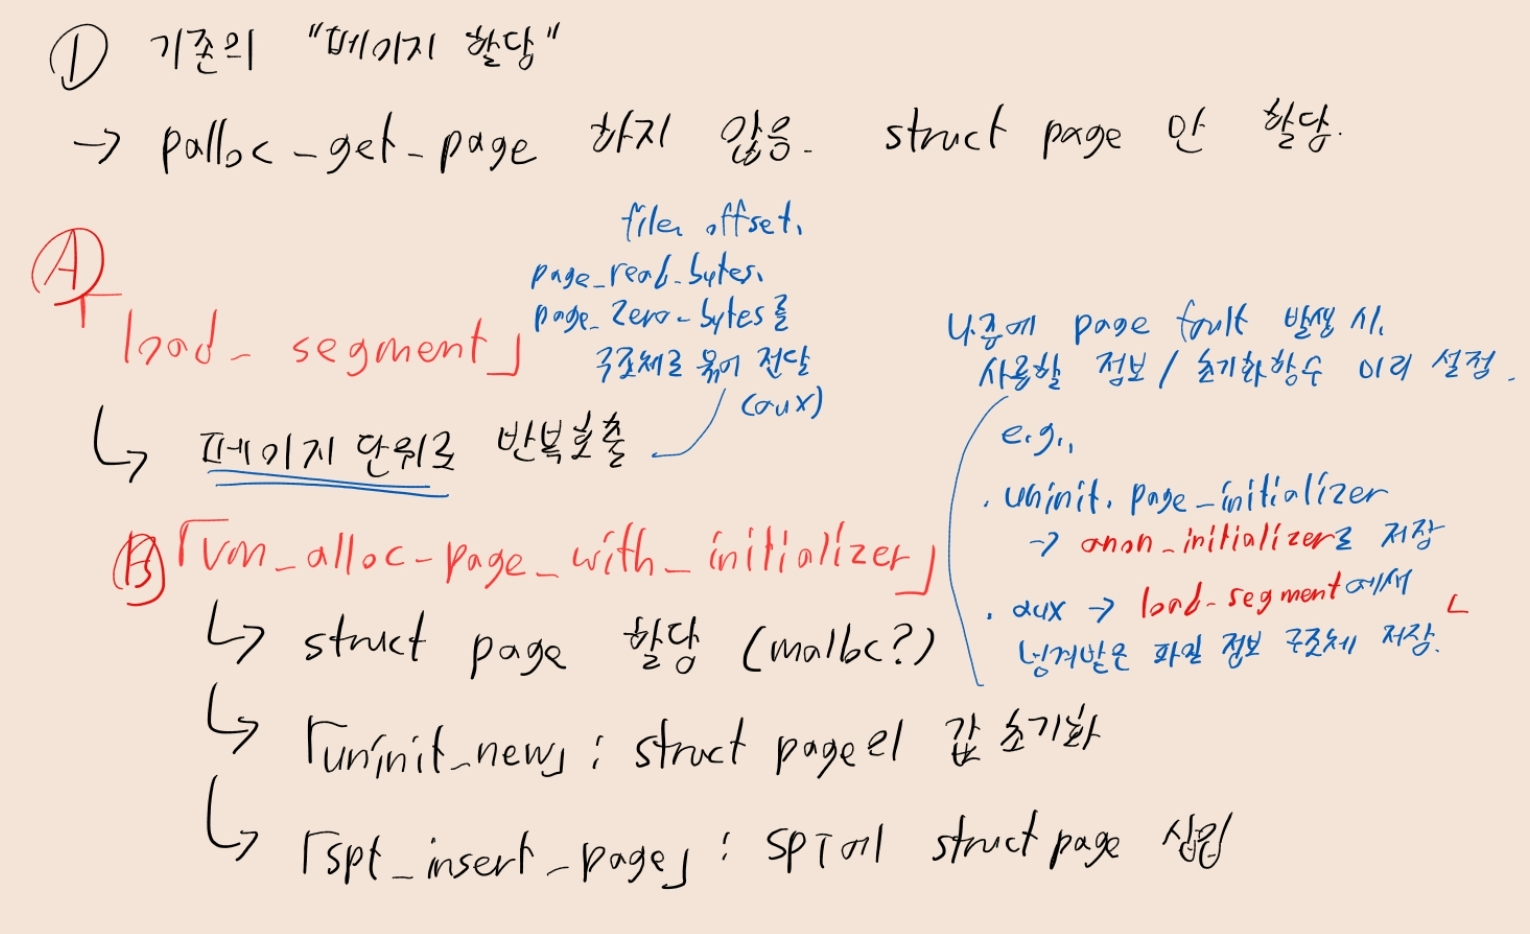 ① 기존의 "페이지 할당"
→ palloc_get_page 하지 않음. struct page 만 할당.
Ⓐ
「load_segment」
file, offset,
page_read_bytes,
page_zero_bytes를
구조체로 묶어 전달
(aux)
↳ 페이지 단위로 반복호출
Ⓑ「vm_alloc_page_with_initializer」
↳ struct page 할당 (malloc?)
↳ 「uninit_new」: struct page의 값 초기화
↳ 「spt_insert_page」: SPT에 struct page 삽입
나중에 page fault 발생 시,
사용할 정보 / 초기화함수 미리 설정.
e.g.,
. uninit. page_initializer
→ anon_initializer로 저장
. aux → load-segment에서
넘겨받은 파일 정보 구조체 저장.